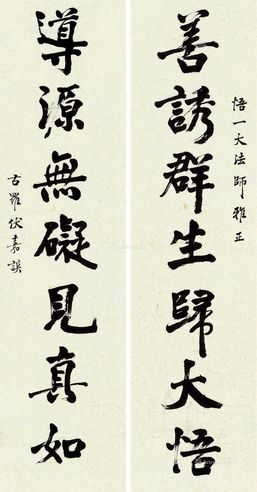 悟一大法師雅正
善誘群生歸大悟
導源無礙見真如
古羅伏嘉謨